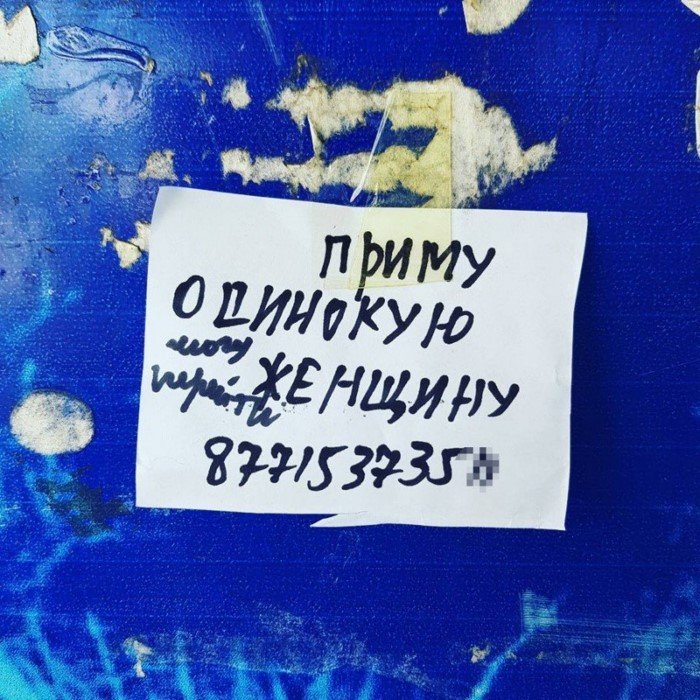 ПРИМУ
ОДИНОКУЮ
могу
перейти
ЖЕНЩИНУ
877153735